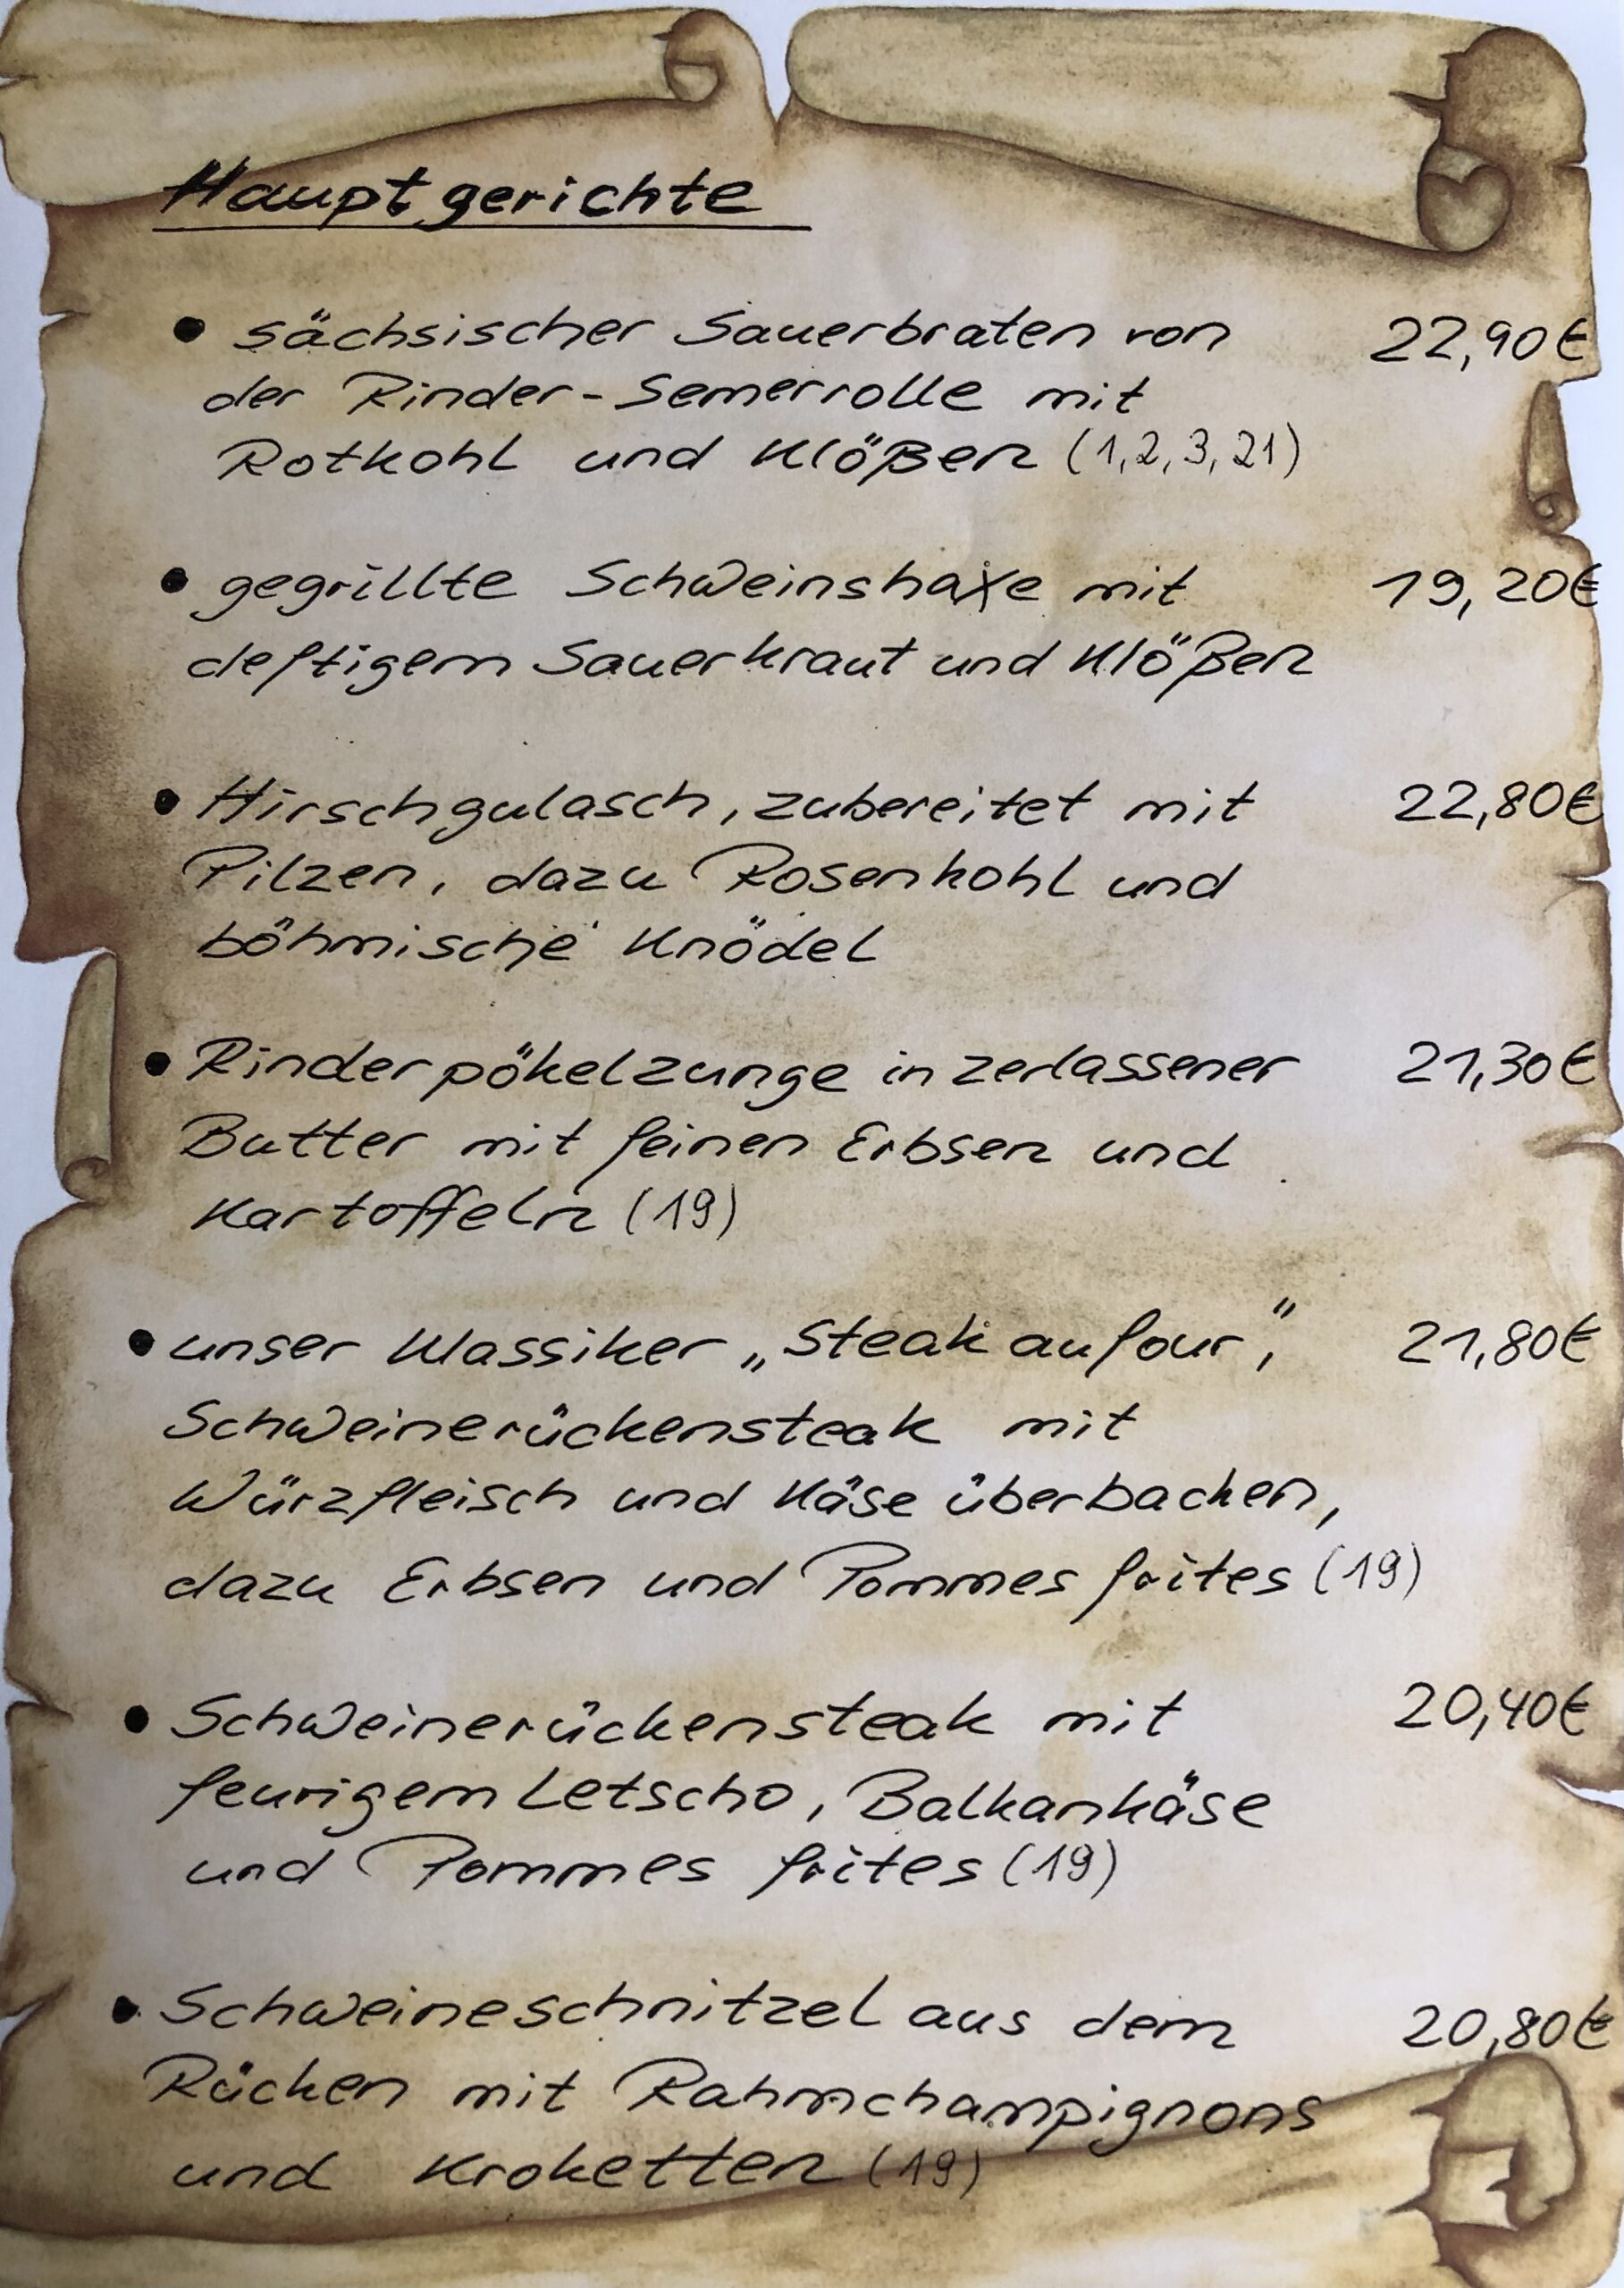 Hauptgerichte
• sächsischer Sauerbraten von 22,90€
der Rinder-Semerrolle mit
Rotkohl und Klößen (1,2,3,21)
• gegrillte Schweinshaxe mit 19,20€
deftigem Sauerkraut und Klößen
• Hirschgulasch, zubereitet mit 22,80€
Pilzen, dazu Rosenkohl und
böhmische Knödel
• Rinderpökelzunge in zerlassener 21,30€
Butter mit feinen Erbsen und
Kartoffeln (19)
• unser Klassiker „Steak au four", 21,80€
Schweinerückensteak mit
Würzfleisch und Käse überbacken,
dazu Erbsen und Pommes frites (19)
• Schweinerückensteak mit 20,40€
feurigem Letscho, Balkankäse
und Pommes frites (19)
• Schweineschnitzel aus dem 20,80€
Rücken mit Rahmchampignons
und Kroketten (19)